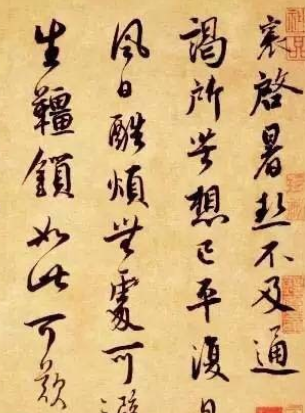 寔啓暑熱不及通
謁所苦想已平復日
風日酷煩無處可避
生韁鎖如此可歎